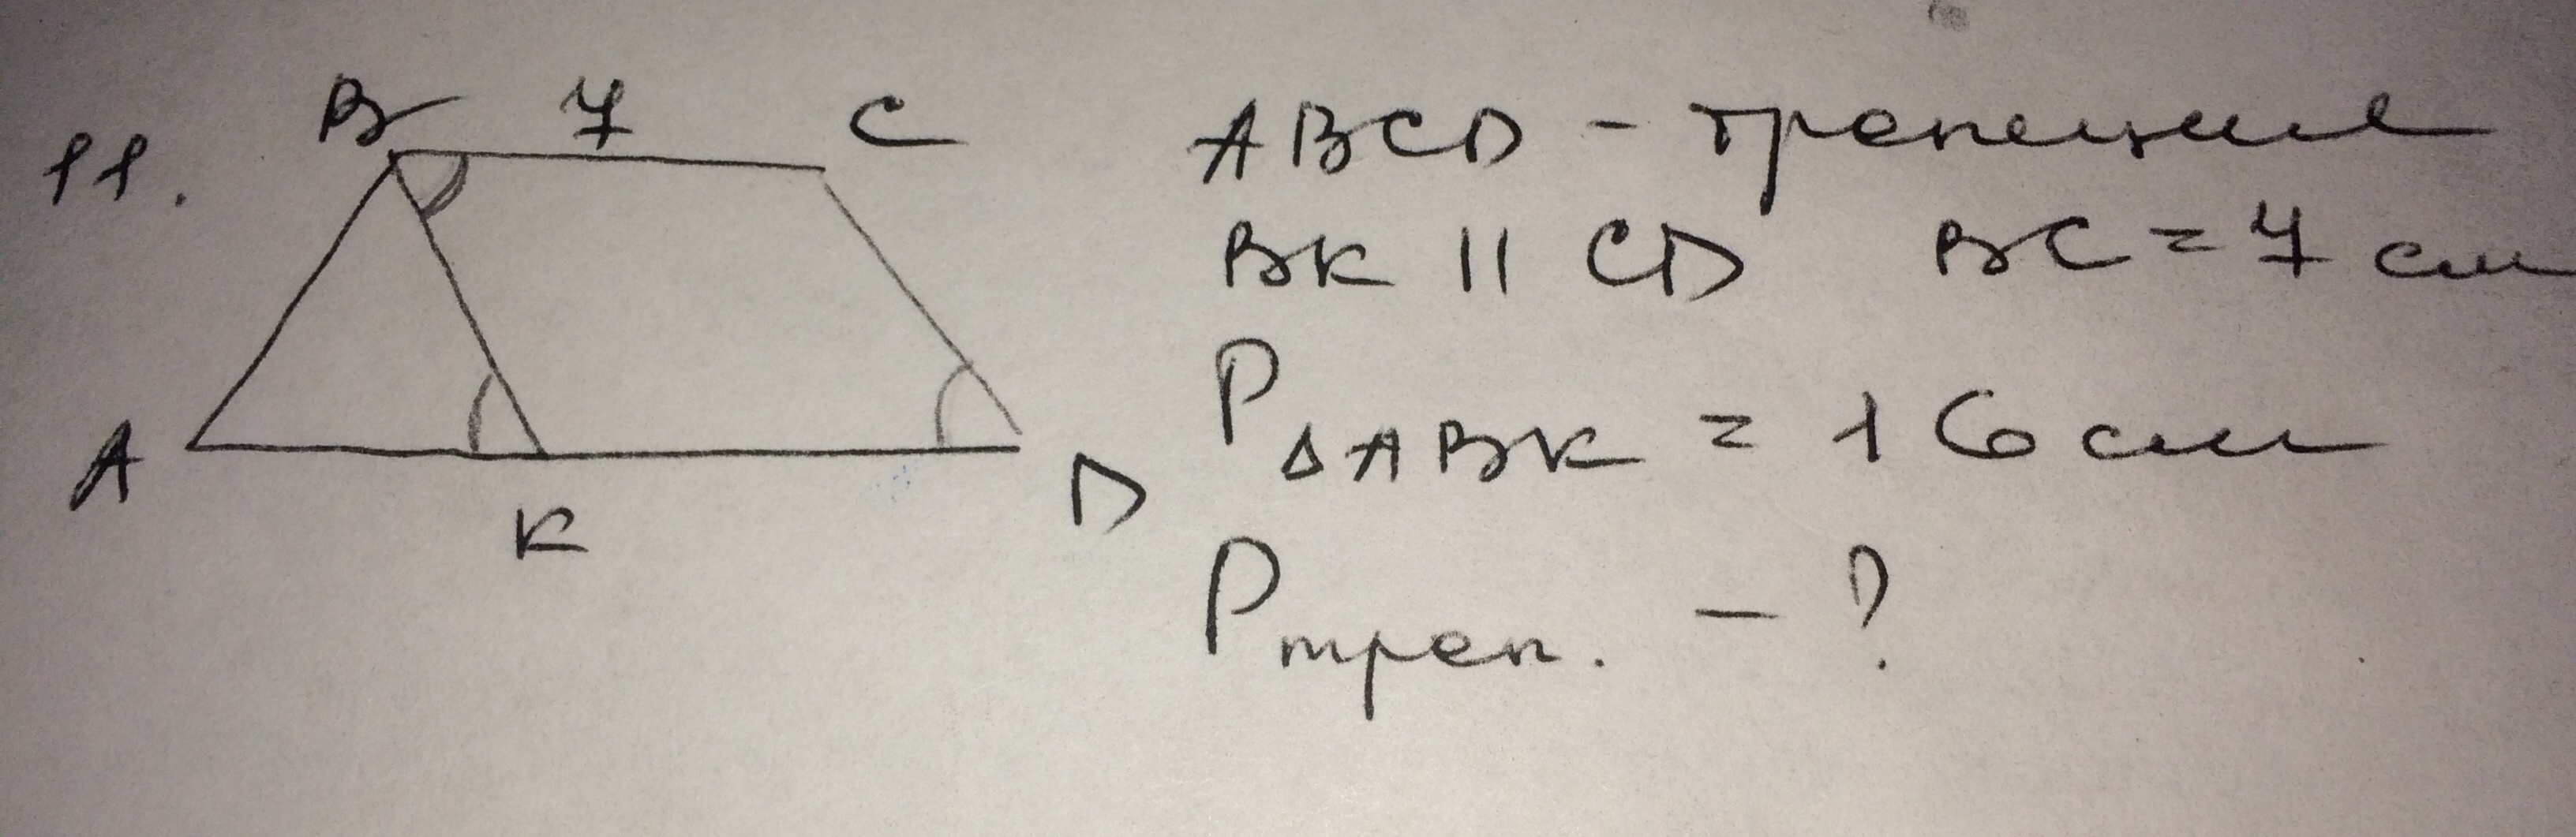 11.
B 7 C
A K D
ABCD - трапеция
BK || CD BC = 7 см
P ΔABK = 16 см
P трап. - ?